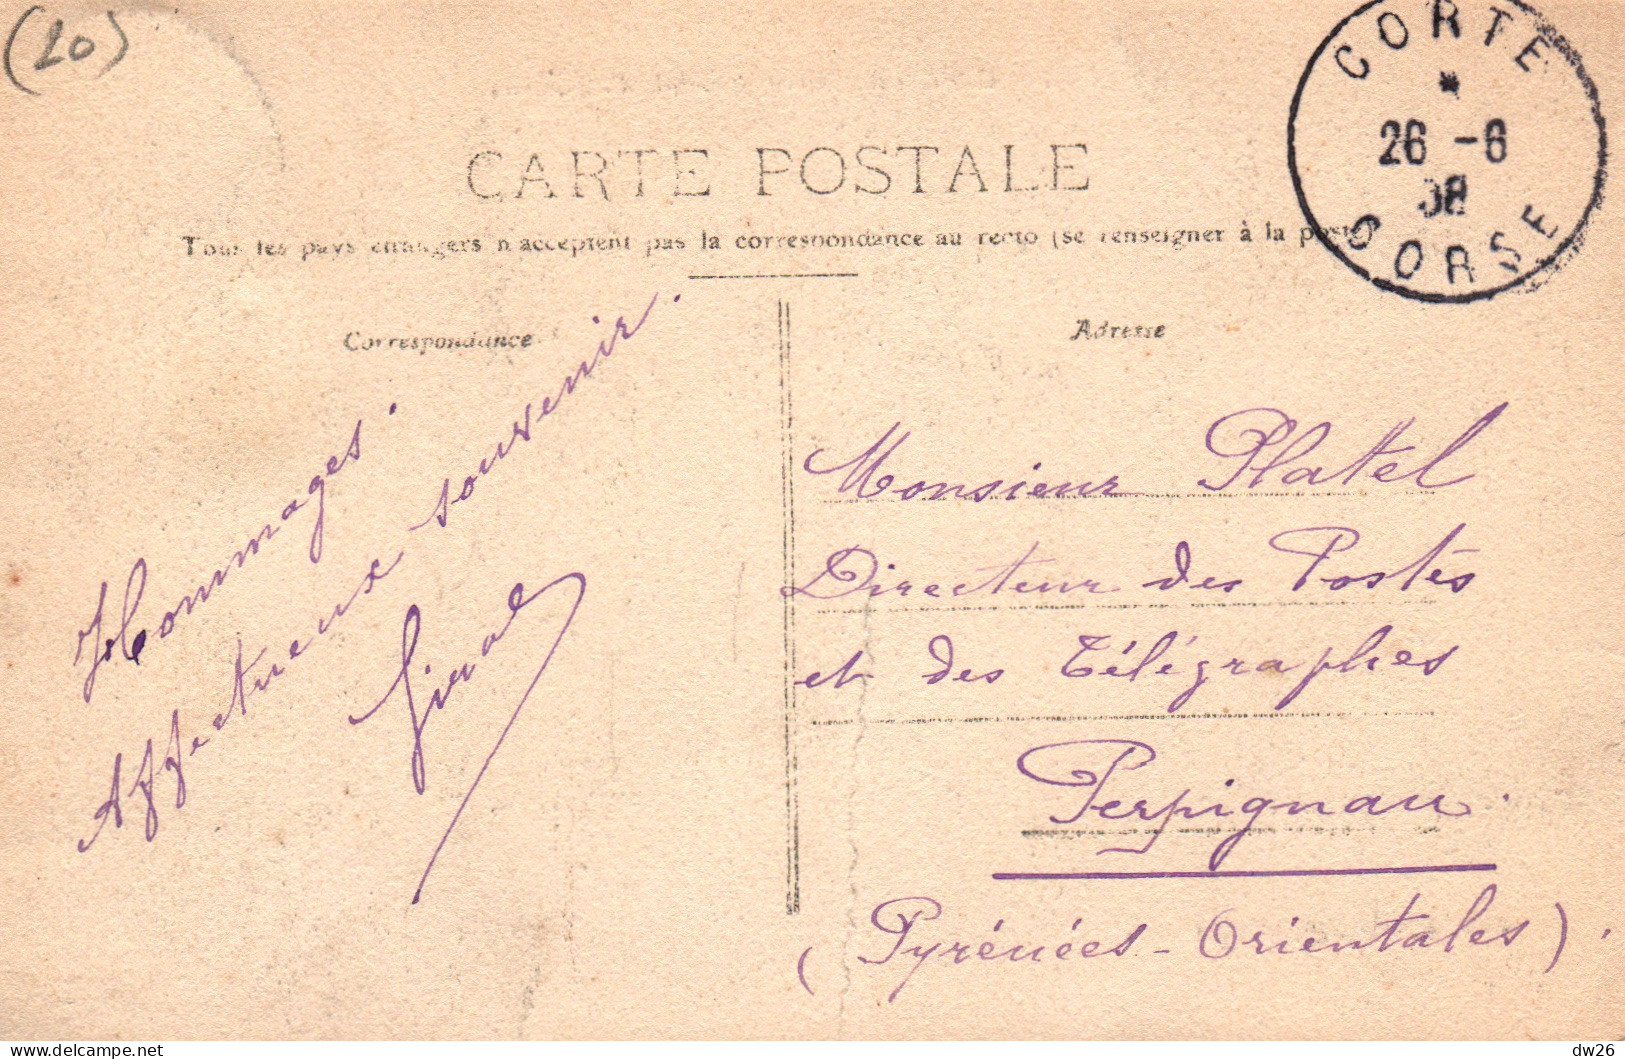 (20)
CORTE
*
26 -6
08
CORSE
CARTE POSTALE
Tous les pays étrangers n'acceptent pas la correspondance au recto (se renseigner à la poste)
Correspondance
Adresse
Hommages.
Affectueux souvenir.
Monsieur Plattel
Directeur des Postes
et des Télégraphes
Perpignan.
(Pyrénées-Orientales).
delcampe.net
dw26